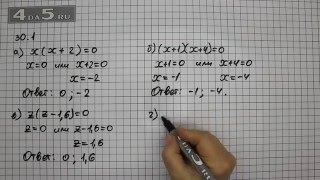 4DA5.RU
30.1
а) x(x+2)=0
x=0 или x+2=0
x=-2
Ответ: 0; -2
б) (x+1)(x+4)=0
x+1=0 или x+4=0
x=-1 x=-4
Ответ: -1; -4.
в) z(z-1,6)=0
z=0 или z-1,6=0
z=1,6
Ответ: 0; 1,6
г)